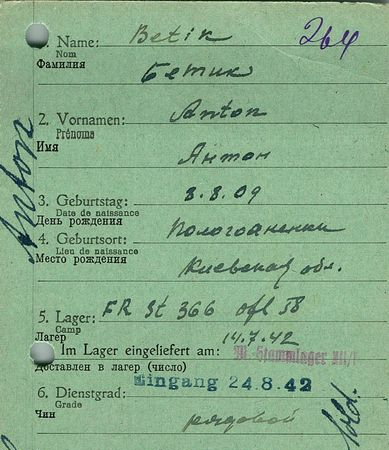 1. Name: Betik 264
Nom
Фамилия Бетик
2. Vornamen: Anton
Prénoms
Имя Антон
Anton
3. Geburtstag: 3.8.09
Date de naissance
День рождения
4. Geburtsort:
Lieu de naissance
Место рождения Киевская обл.
5. Lager: FR St 366 ofl 58
Camp
Лагерь 14.7.42
Im Lager eingeliefert am: M. Stammlager
Доставлен в лагерь (число)
Eingang 24.8.42
6. Dienstgrad:
Grade
Чин рядовой
Sold.